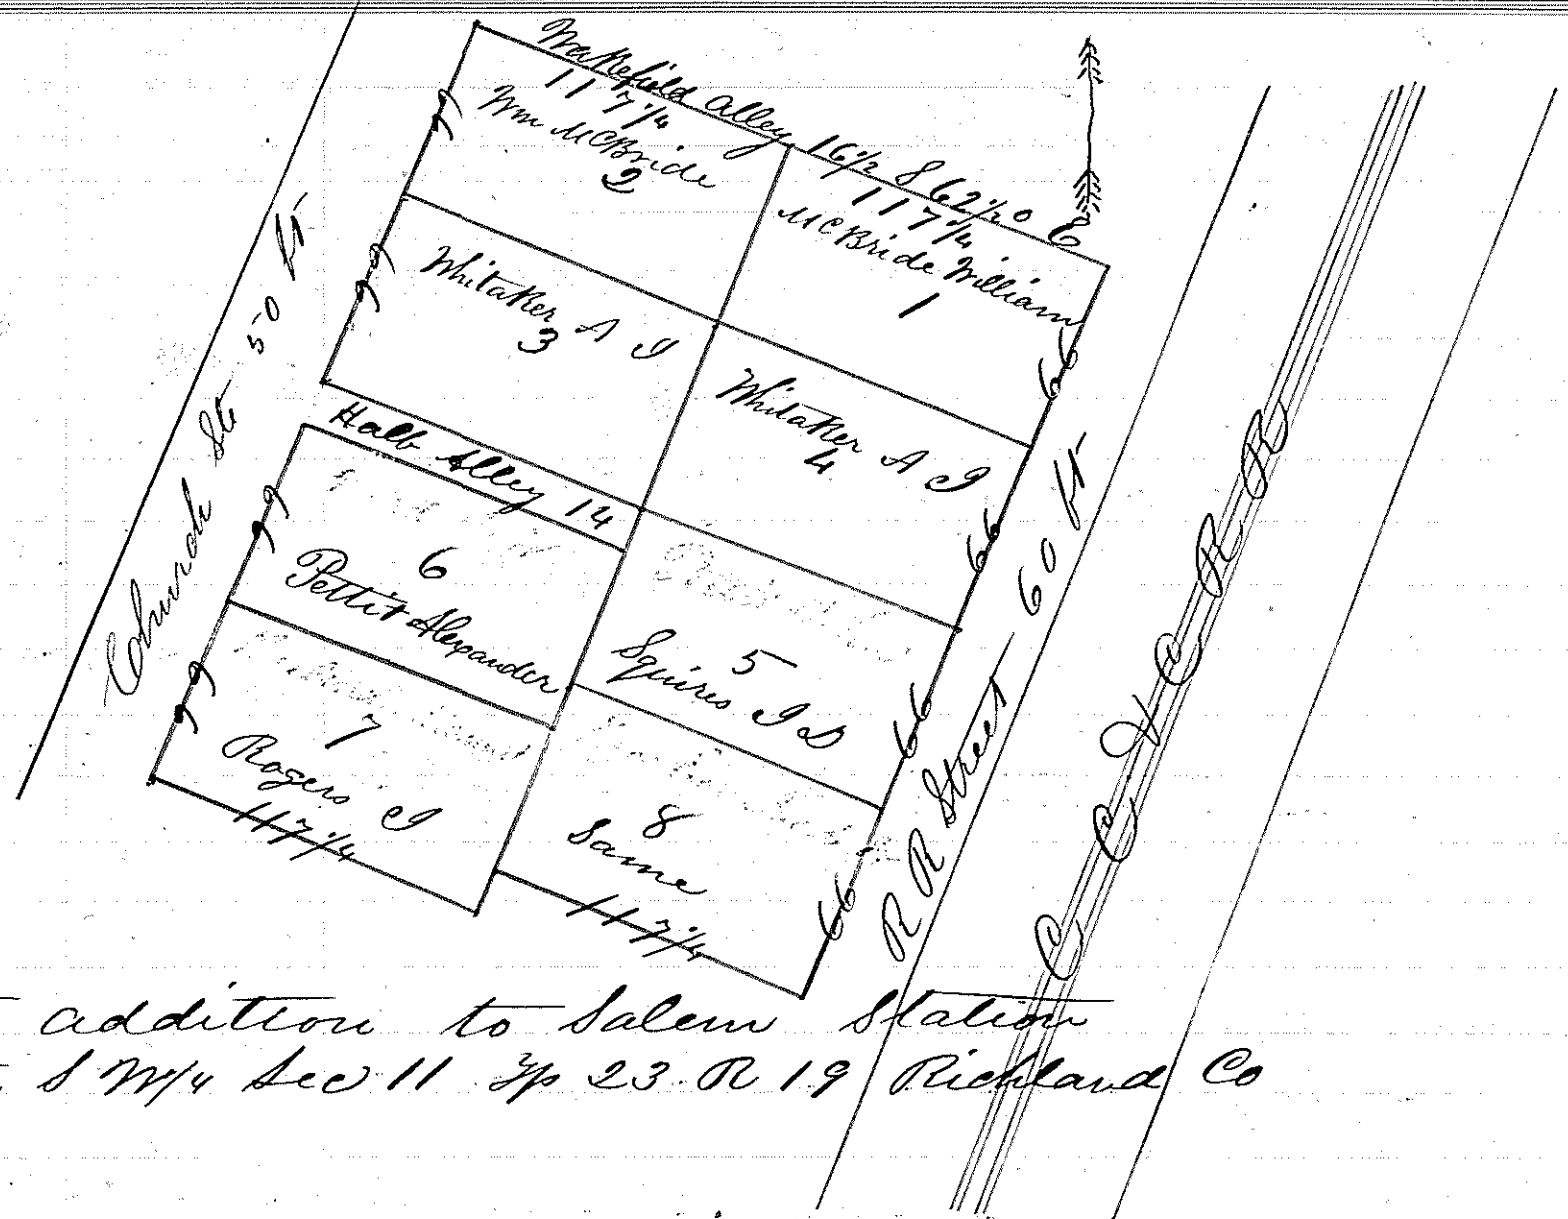 Wakefield Alley 16 1/2 S 62 1/2° E
117 1/4
Wm McBride
2
117 1/4
McBride William
1
Whitaker A J
3
Whitaker A J
4
66
66
66
66
Church St 50 ft
Half Alley 14
6
Pettit Alexander
5
Squires J D
7
Rogers J
117 1/4
8
Same
117 1/4
R R Street 60 ft
C C & C R R
addition to Salem Station
S W/4 Sec 11 Tp 23 R 19 Richland Co